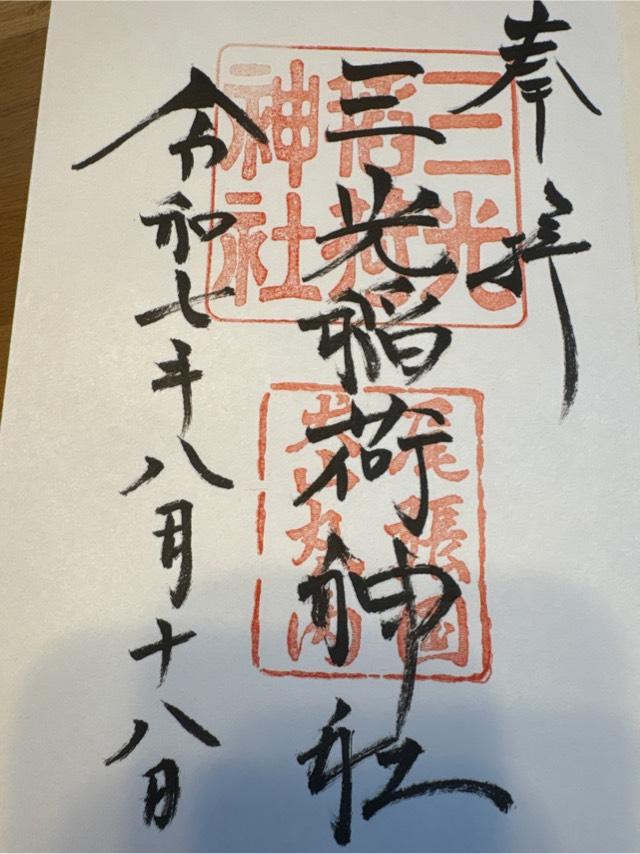 奉拝
三光稲荷神社
令和七年八月十八日
三光
稲荷
神社
尾張國
犬山丸の内